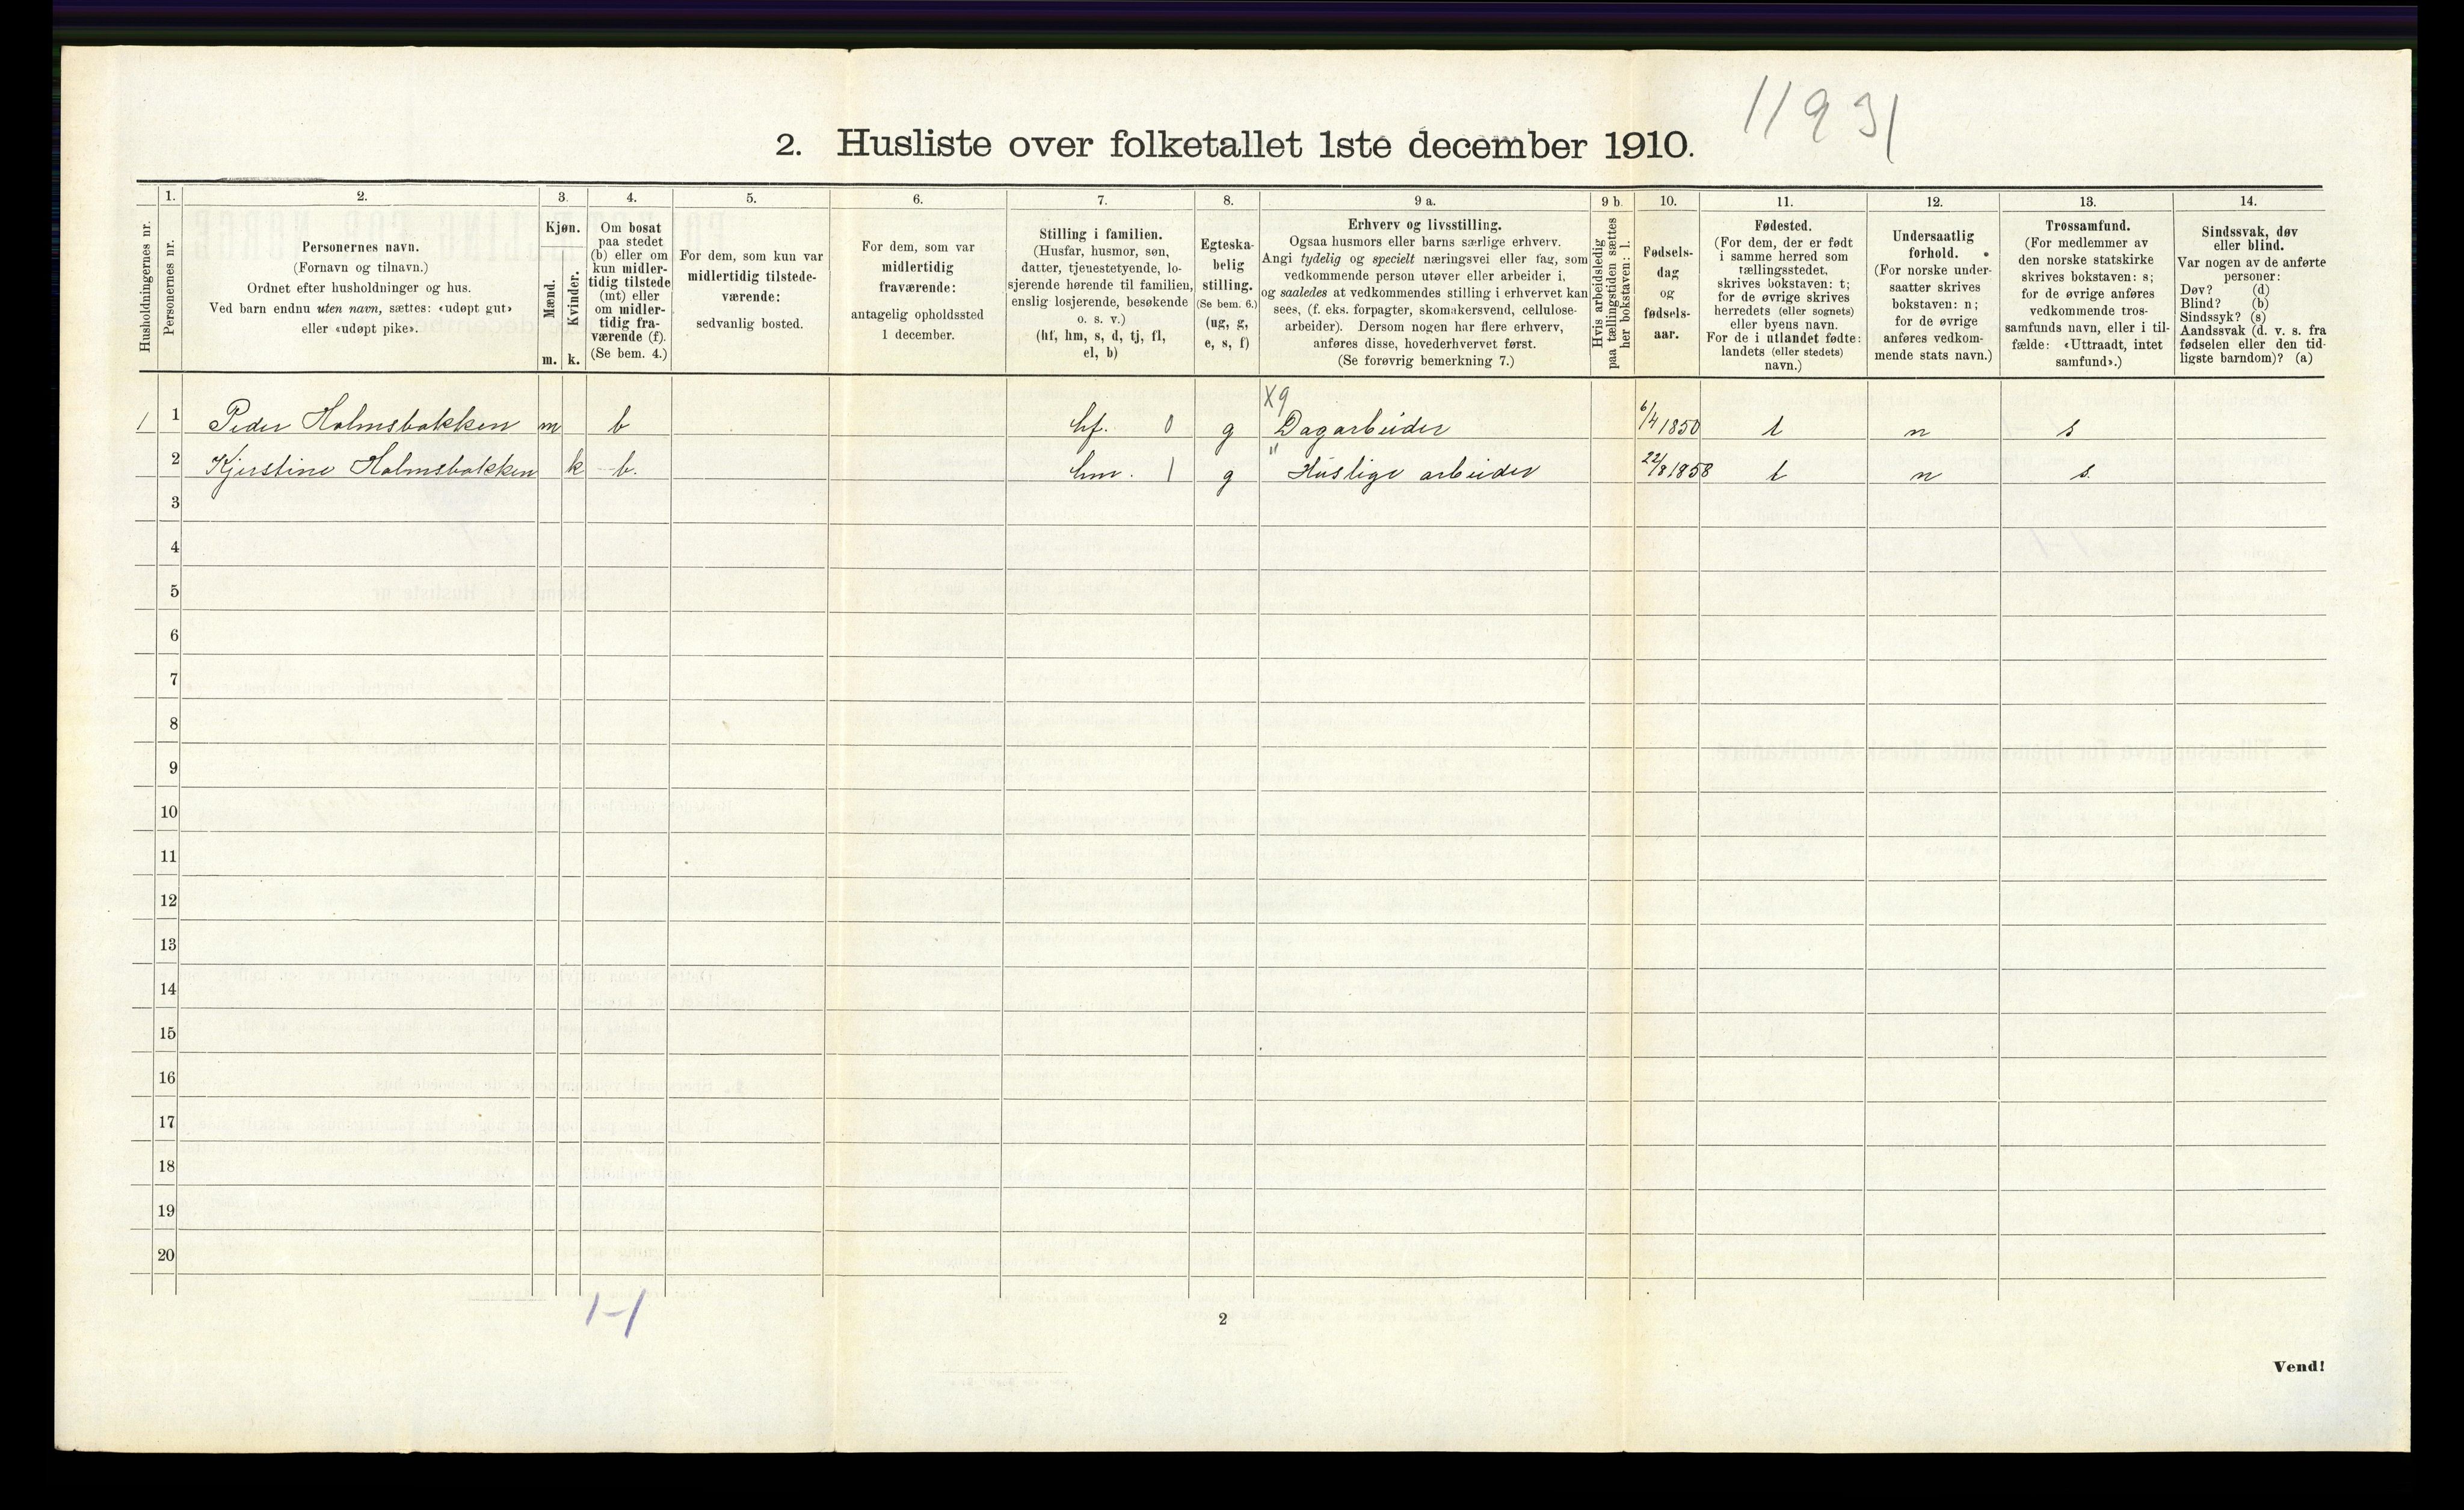 11931
2. Husliste over folketallet 1ste december 1910.
Husholdningernes nr.
1.
Personernes nr.
2.
Personernes navn.
(Fornavn og tilnavn.)
Ordnet efter husholdninger og hus.
Ved barn endnu uten navn, sættes: «udøpt gut»
eller «udøpt pike».
3.
Kjøn.
Mænd.
Kvinder.
m. k.
4.
Om bosat
paa stedet
(b) eller om
kun midler-
tidig tilstede
(mt) eller
om midler-
tidig fra-
værende (f).
(Se bem. 4.)
5.
For dem, som kun var
midlertidig tilstede-
værende:
sedvanlig bosted.
6.
For dem, som var
midlertidig
fraværende:
antagelig opholdssted
1 december.
7.
Stilling i familien.
(Husfar, husmor, søn,
datter, tjenestetyende, lo-
sjerende hørende til familien,
enslig losjerende, besøkende
o. s. v.)
(hf, hm, s, d, tj, fl,
el, b)
8.
Egteska-
belig
stilling.
(Se bem. 6.)
(ug, g,
e, s, f)
9 a.
Erhverv og livsstilling.
Ogsaa husmors eller barns særlige erhverv.
Angi tydelig og specielt næringsvei eller fag, som
vedkommende person utøver eller arbeider i,
og saaledes at vedkommendes stilling i erhvervet kan
sees, (f. eks. forpagter, skomakersvend, cellulose-
arbeider). Dersom nogen har flere erhverv,
anføres disse, hovederhvervet først.
(Se forøvrig bemerkning 7.)
9 b.
Hvis arbeidsledig
paa tællingstiden sættes
her bokstaven: l.
10.
Fødsels-
dag
og
fødsels-
aar.
11.
Fødested.
(For dem, der er født
i samme herred som
tællingsstedet,
skrives bokstaven: t;
for de øvrige skrives
herredets (eller sognets)
eller byens navn.
For de i utlandet fødte:
landets (eller stedets)
navn.)
12.
Undersaatlig
forhold.
(For norske under-
saatter skrives
bokstaven: n;
for de øvrige
anføres vedkom-
mende stats navn.)
13.
Trossamfund.
(For medlemmer av
den norske statskirke
skrives bokstaven: s;
for de øvrige anføres
vedkommende tros-
samfunds navn, eller i til-
fælde: «Uttraadt, intet
samfund».)
14.
Sindssvak, døv
eller blind.
Var nogen av de anførte
personer:
Døv? (d)
Blind? (b)
Sindssyk? (s)
Aandssvak (d. v. s. fra
fødselen eller den tid-
ligste barndom)? (a)
X9
1 1 Peder Holmsbakken m b hf. 0 g Dagarbeider 6/4 1850 t n s
2 Kjerstine Holmsbakken k b. hm. 1 g " Huslige arbeider 22/8 1858 t n s.
3
4
5
6
7
8
9
10
11
12
13
14
15
16
17
18
19
20
1-1
2
Vend!